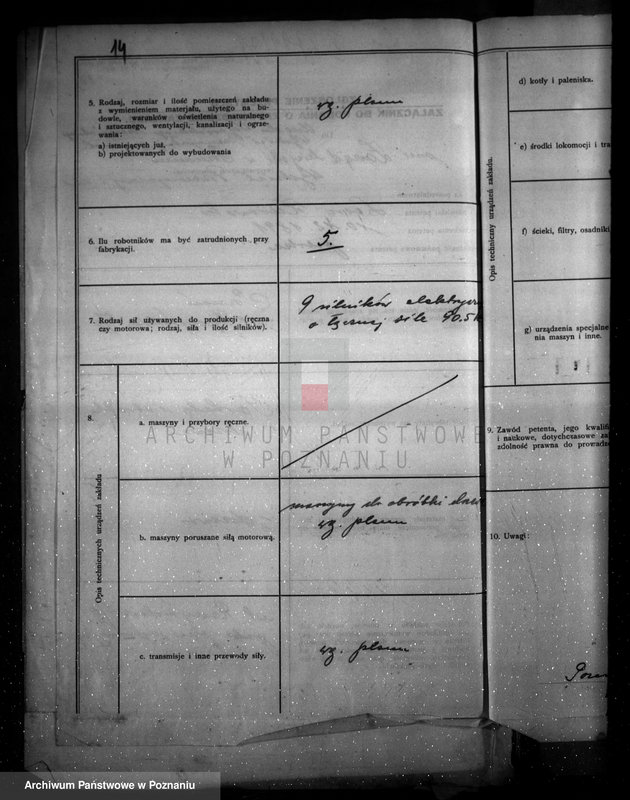 14
5. Rodzaj, rozmiar i ilość pomieszczeń zakładu
z wymienieniem materjału, użytego na bu-
dowle, warunków oświetlenia naturalnego
i sztucznego, wentylacji, kanalizacji i ogrze-
wania:
a) istniejących już,
b) projektowanych do wybudowania
wg. planu
6. Ilu robotników ma być zatrudnionych przy
fabrykacji.
5.
7. Rodzaj sił używanych do produkcji (ręczna
czy motorowa; rodzaj, siła i ilość silników).
9 silników elektrycz
o łącznej sile 40.5
8.
Opis technicznych urządzeń zakładu
a. maszyny i przybory ręczne.
b. maszyny poruszane siłą motorową.
maszyny do obróbki
wg. planu
c. transmisje i inne przewody siły.
wg. planu
Opis techniczny urządzeń zakładu.
d) kotły i paleniska.
e) środki lokomocji i tra
f) ścieki, filtry, osadniki
g) urządzenia specjalne
nia maszyn i inne.
9. Zawód petenta, jego kwalifi
i naukowe, dotychczasowe za
zdolność prawna do prowadze
10. Uwagi:
ARCHIWUM PAŃSTWOWE
W POZNANIU
Archiwum Państwowe w Poznaniu